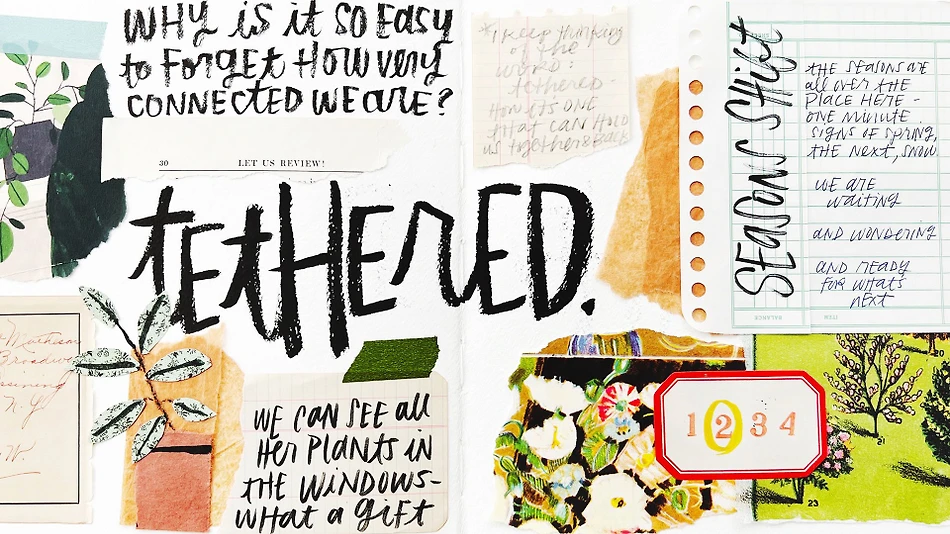 WHY is it so Easy
to Forget How very
CONNECTED WE are?
30 LET US REVIEW!
tetHERED.
*I keep thinking
of the
word:
tethered -
How its one
that can Hold
us together & back
SEASONS SHift
THE SEASONS ARE
all over THE
PLACE HERE -
ONE MINUTE
SIGNS OF SPRING,
THE NEXT, SNOW.
WE ARE
waiting
and wondering
and ready
for what's
next
BALANCE
ITEM
Broadw
N.Y
WE CAN SEE all
Her Plants in
the WINDOWS-
WHAT a GIFT
1 2 3 4
0
21
23